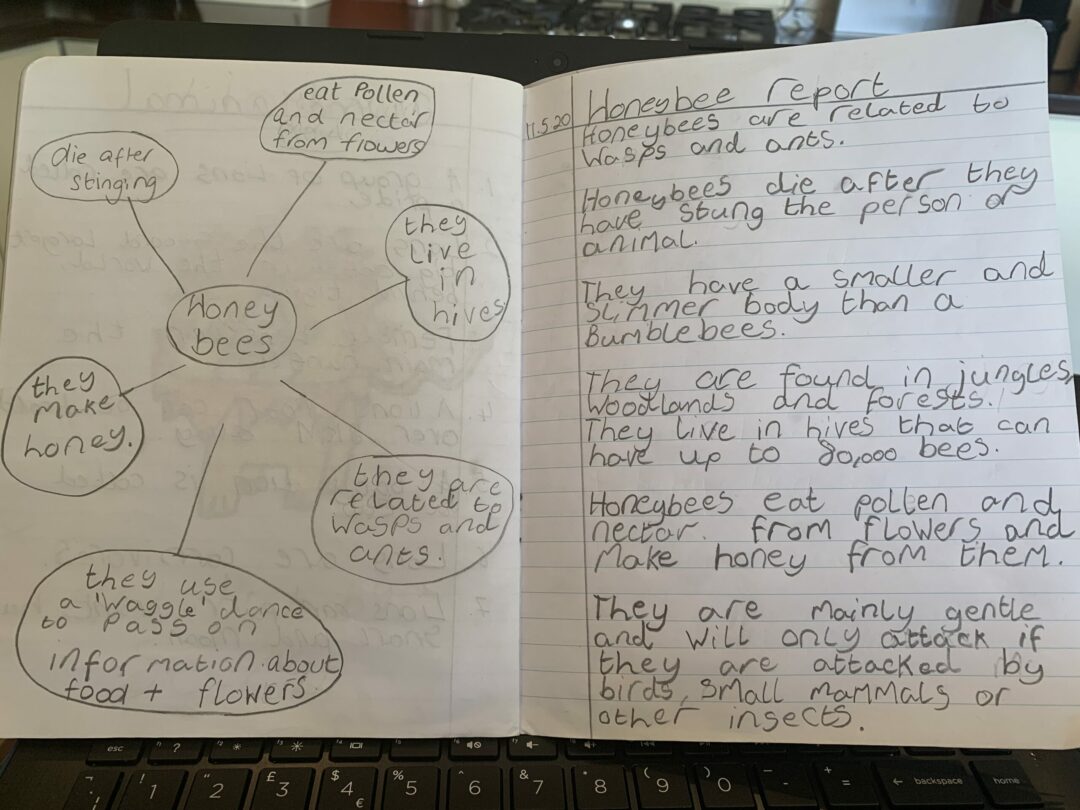 eat Pollen
and nectar
from flowers
die after
stinging
they
live
in
hives
Honey
bees
they
make
honey.
they are
related to
wasps and
ants.
they use
a 'waggle' dance
to pass on
information about
food + flowers.
Honeybee report
11.5.20
Honeybees are related to
wasps and ants.
Honeybees die after they
have stung the person or
animal.
They have a smaller and
slimmer body than a
Bumblebees.
They are found in jungles,
woodlands and forests.
They live in hives that can
have up to 80,000 bees.
Honeybees eat pollen and
nectar. from flowers and
make honey from them.
They are mainly gentle
and will only attack if
they are attacked by
birds, small mammals or
other insects.
esc
?
!
1
"
2
£
3
$
4
€
%
5
^
6
&
7
*
8
(
9
)
0
-
+
=
backspace
home